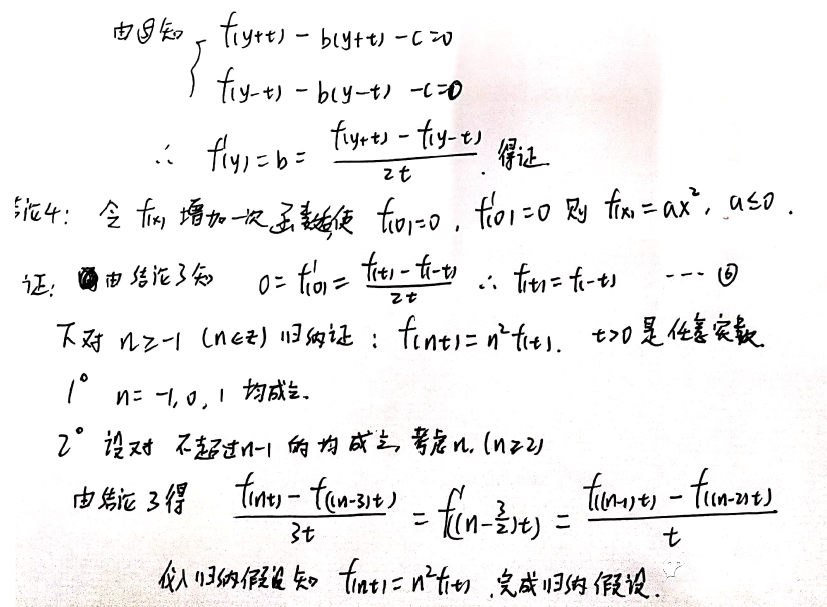 由图知 { f(y+t) - b(y+t) - c = 0
f(y-t) - b(y-t) - c = 0
∴ f'(y) = b = (f(y+t) - f(y-t)) / 2t . 得证
结论4: 令 f(x) 增加一次函数使 f(0)=0, f'(0)=0 则 f(x)=ax², a≤0.
证: 由结论3知 0 = f'(0) = (f(t) - f(-t)) / 2t ∴ f(t)=f(-t) ---- ⑥
下对 n≥-1 (n∈Z) 归纳证: f(nt)=n²f(t). t>0 是任意实数.
1° n=-1,0,1 均成立.
2° 设对 不超过n-1 的均成立, 考虑n. (n≥2)
由结论3得 (f(nt) - f((n-3)t)) / 3t = f'((n-3/2)t) = (f((n-1)t) - f((n-2)t)) / t
代入归纳假设知 f(nt)=n²f(t) , 完成归纳假设.